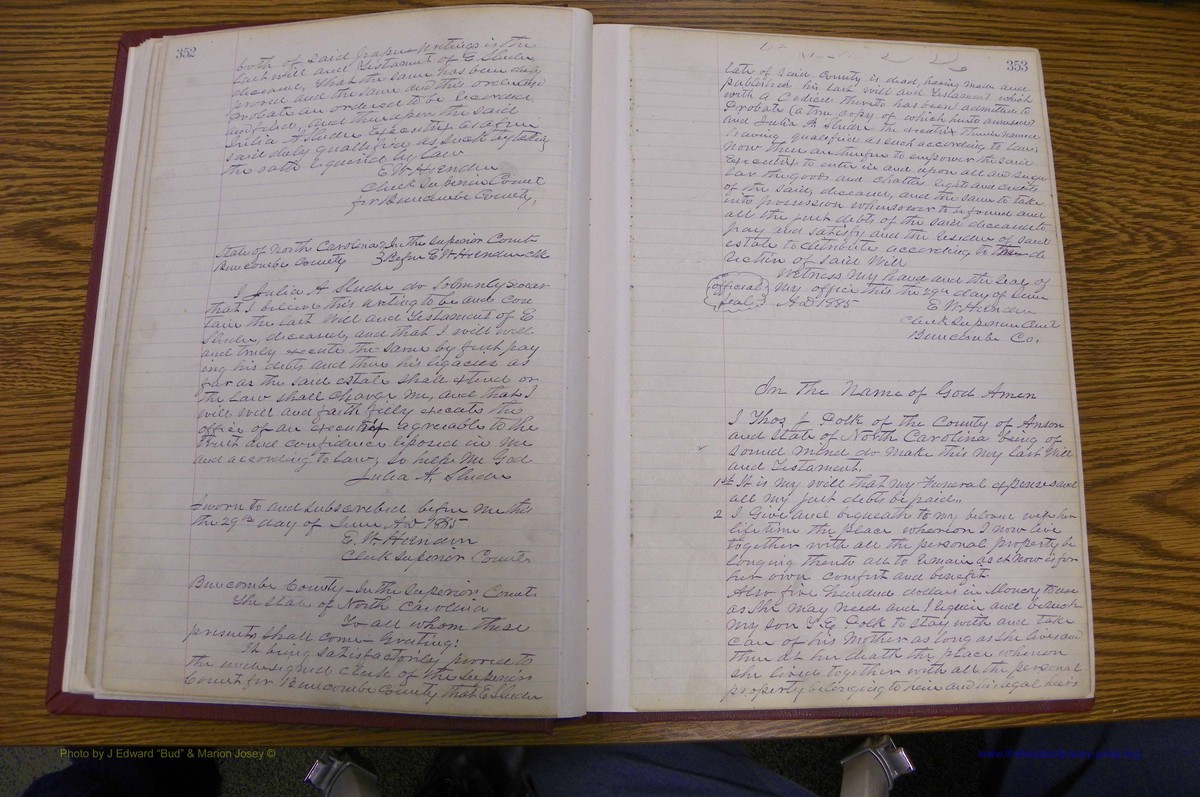 352
both of said paper writings is the
last will and Testament of E Sluder
deceased, that the same has been duly
proved and the same and this order
probate are ordered to be recorded
and filed, and thereupon the said
Julia A Sluder Executrix as afore
said duly qualifies as such by taking
the oath required by Law
E W Herndon
Clerk Superior Court
for Buncombe County,
State of North Carolina } In the Superior Court
Buncombe County } Before E W Herndon Clk
I Julia A Sluder do solemnly swear
that I believe this writing to be and con
tain the last Will and Testament of E
Sluder, deceased, and that I will well
and truly execute the same by first pay
ing his debts and then his legacies as
far as the said estate shall extend or
the Law shall charge me, and that I
will well and faithfully execute the
office of an executrix agreeable to the
trust and confidence reposed in me
and according to Law; so help me God
Julia A. Sluder
Sworn to and subscribed before me this
the 29th day of June AD 1885
E. W Herndon
Clerk Superior Court
Buncombe County - In the Superior Court
The State of North Carolina
To all whom these
presents shall come - Greeting:
It being satisfactorily proved to
the undersigned clerk of the Superior
Court for Buncombe County that E Sluder
353
late of said County is dead, having made and
published his last will and Testament which
with a Codicil thereto has been admitted to
Probate (a true copy of which hereto annexed)
and Julia A Sluder the executrix therein named
having qualified as such according to Law;
Now these are therefore to empower the said
Executrix to enter in and upon all and singu
lar the goods and chattles rights and credits
of the said, deceased, and the same to take
into possession wheresoever to be found and
all the just debts of the said deceased to
pay and satisfy and the residue of said
estate to distribute according to the di
rection of said Will
Witness My hand and the seal of
(official seal) My office this the 29th day of June
AD 1885
E. W Herndon
Clerk Superior Court
Buncombe Co.
In the Name of God Amen
I Thos J Polk of the County of Anson
and State of North Carolina being of
sound mind do make this my last Will
and Testament.
1st It is my will that my Funeral expenses and
all my just debts be paid,,
2 I Give and bequeath to my belove wife her
life time the place whereon I now live
together with all the personal property be
longing thereto all to remain as it now is for
her own comfort and benefit.
Also five hundred dollars in Money to use
as she may need and I require and
my son T. E Polk to stay with and take
care of his Mother as long as she lives and
then at her death the place whereon
she lived together with all the personal
property belonging to him and his legal heirs
Photo by J Edward "Bud" & Marion Josey ©